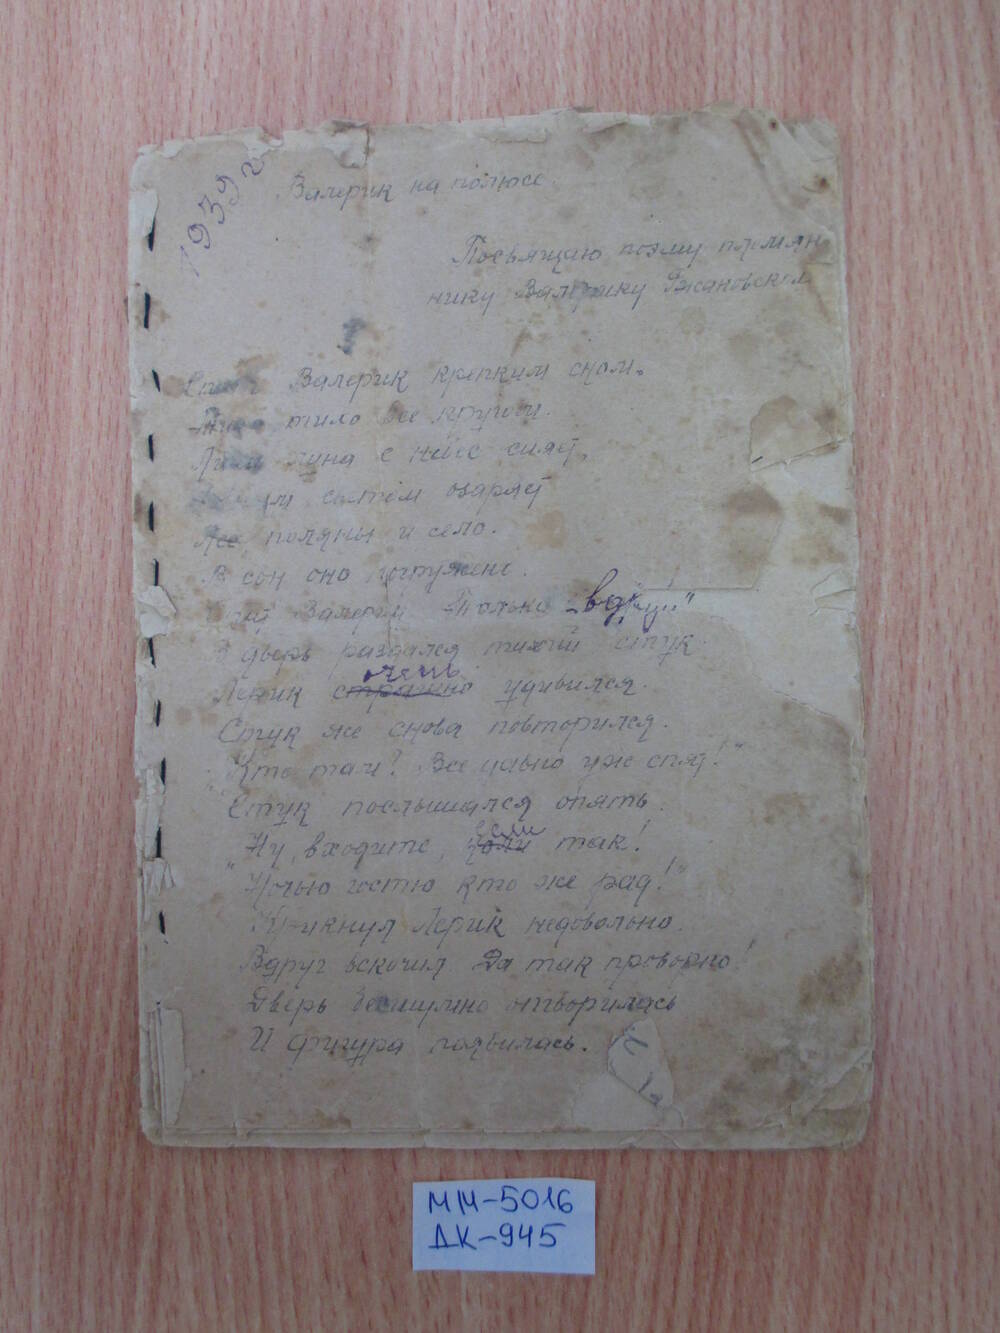 1939 г
Валерик на полюсе.
Посвящаю поэму племян
нику Валерику Ржановском
Валерик крепким сном.
все кругом.
луна с небес сияет,
светом озаряет
Все поляны и село.
В сон оно погружено.
Валерий только „вдруг"
В дверь раздался тихий стук.
очень
Лерик страшно удивился.
Стук же снова повторился.
"Кто там? Все давно уж спят!"
Стук послышался опять.
если
„Ну, входите, коли так!
Ночью гостю кто же рад!"
Крикнул Лерик недовольно.
Вдруг вскочил да так проворно!
Дверь бесшумно отворилась
И фигура появилась.
ММ-5016
ДК-945